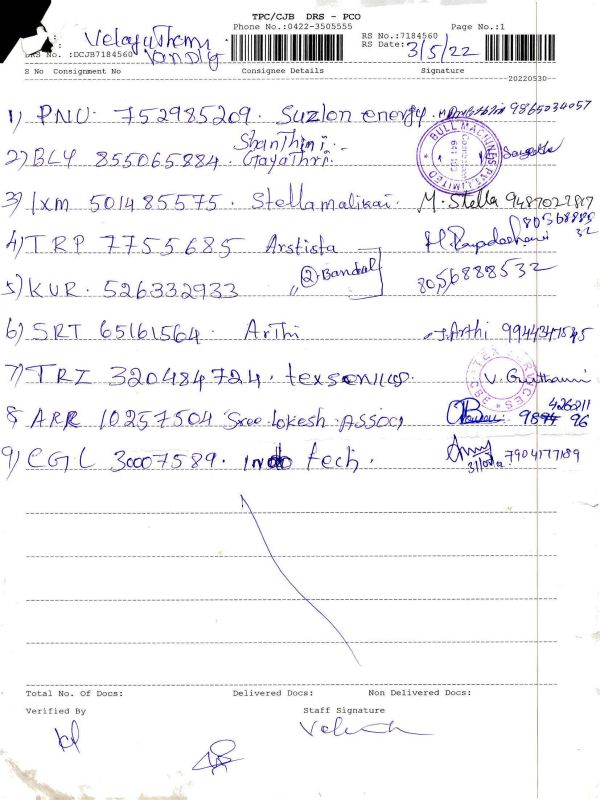 TPC/CJB DRS - PCO
Phone No.:0422-3505555 Page No.:1
RS No.:7184560
RS Date: 3/5/22
DRS No. :DCJB7184560
S No Consignment No Consignee Details Signature
20220530
1) PNU. 752985209. Suzlon energy. 9865034057
Shanthini.
2) BLY 855065884. Gayathri.
BULL MACHINES PVT LIMITED
3) Ixm 501485575. Stellamalikai. M. Stella 9487022817
4) TRP 7755685 Arstista
② Bandal
5) KUR. 526332933 " 8056888532
6) SRT 65161564. Arthi J. Arthi
7) TRI 320484724.
8 ARR 10257504 Sree Lokesh. Assoc
9) CGL 30007589. Indo tech. 7904177189
Total No. Of Docs: Delivered Docs: Non Delivered Docs:
Verified By Staff Signature